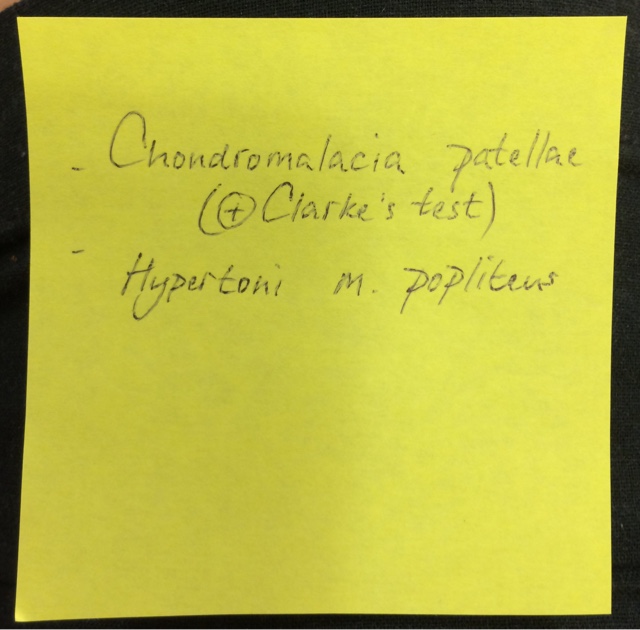 - Chondromalacia patellae
(⊕ Clarke's test)
- Hypertoni m. popliteus